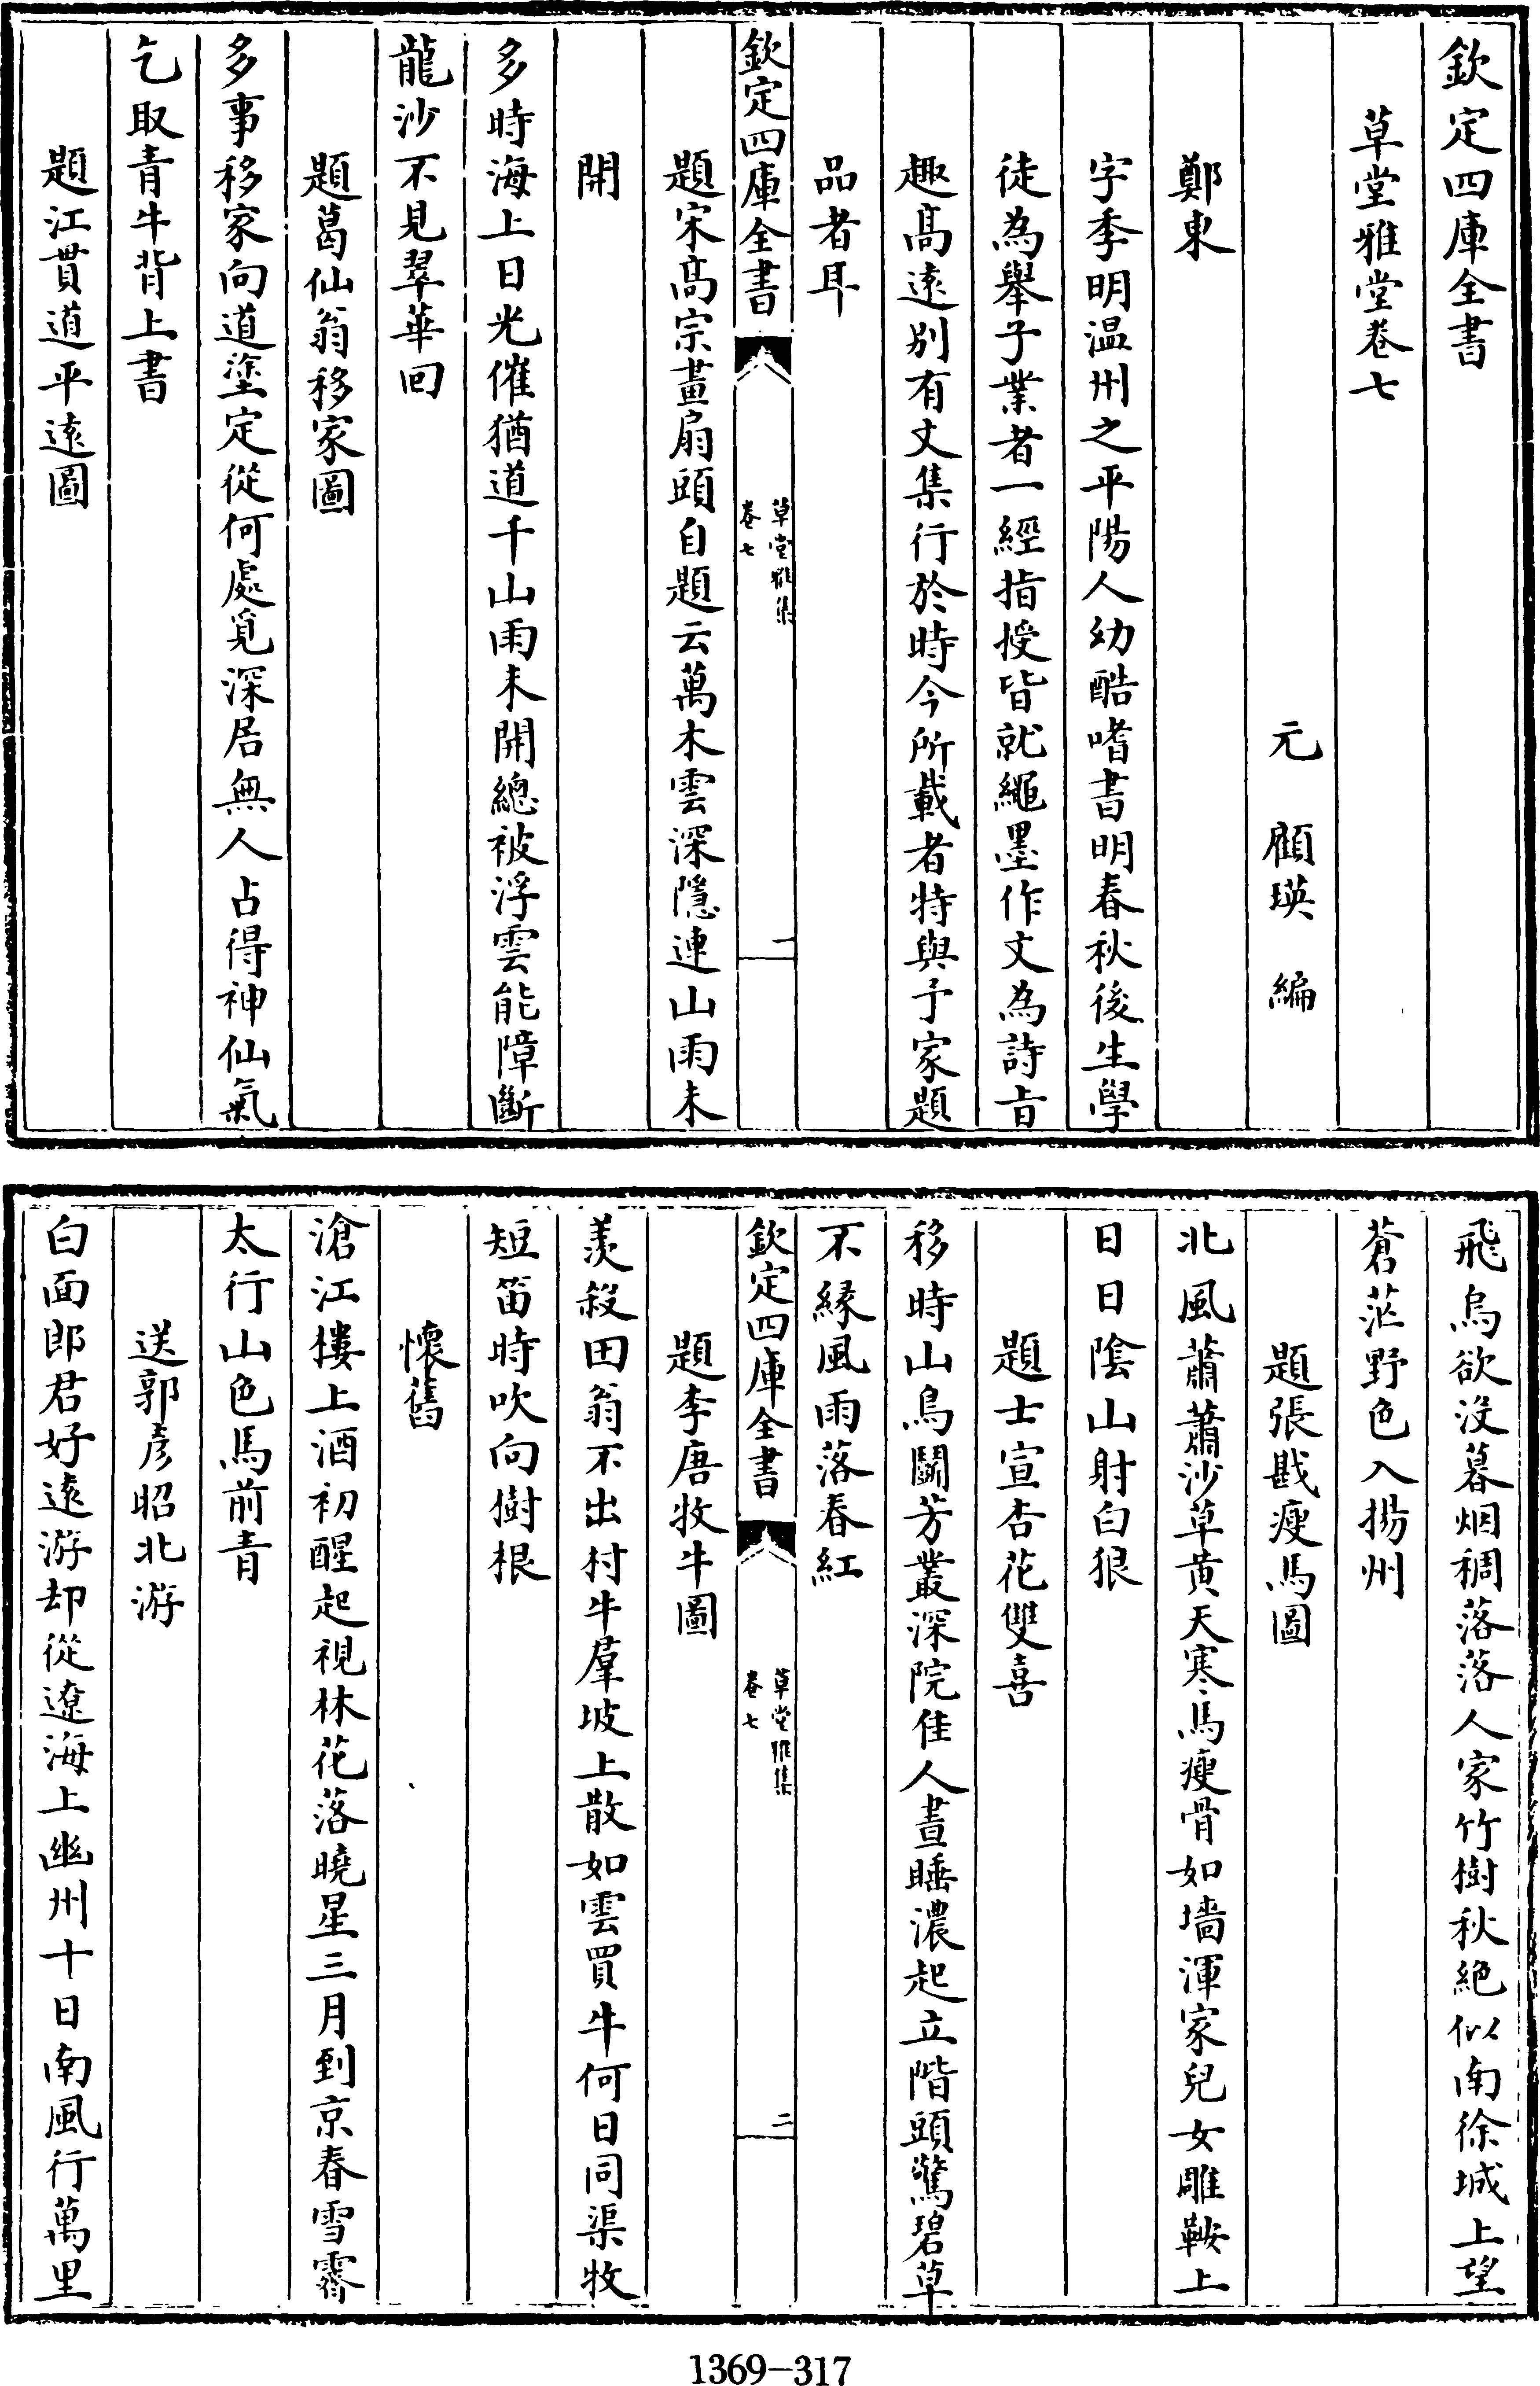 欽定四庫全書
草堂雅堂卷七
元　顧瑛　編
鄭東
字季明温州之平陽人幼酷嗜書明春秋後生學
徒為舉子業者一經指授皆就繩墨作文為詩㫖
趣髙逺别有文集行於時今所載者特與予家題
品者耳
欽定四庫全書
草堂雅集
卷七
一
題宋髙宗畫扇頭自題云萬木雲深隠連山雨未
開
多時海上日光催猶道千山雨未開總被浮雲能障斷
龍沙不見翠華回
題葛仙翁移家圖
多事移家向道塗定從何處覓深居無人占得神仙氣
乞取青牛背上書
題江貫道平逺圖
飛烏欲没暮烟稠落落人家竹樹秋絶似南徐城上望
蒼茫野色入揚州
題張戡瘦馬圖
北風蕭蕭沙草黄天寒馬瘦骨如墻渾家兒女雕鞍上
日日隂山射白狼
題士宣杏花雙喜
移時山鳥鬬芳叢深院佳人晝睡濃起立階頭驚碧草
不緣風雨落春紅
欽定四庫全書
草堂雅集
卷七
二
題李唐牧牛圖
羡殺田翁不出村牛羣坡上散如雲買牛何日同渠牧
短笛時吹向樹根
懐舊
滄江樓上酒初醒起視林花落曉星三月到京春雪霽
太行山色馬前青
送郭彦昭北游
白面郎君好逺游却從遼海上幽州十日南風行萬里
1369—317